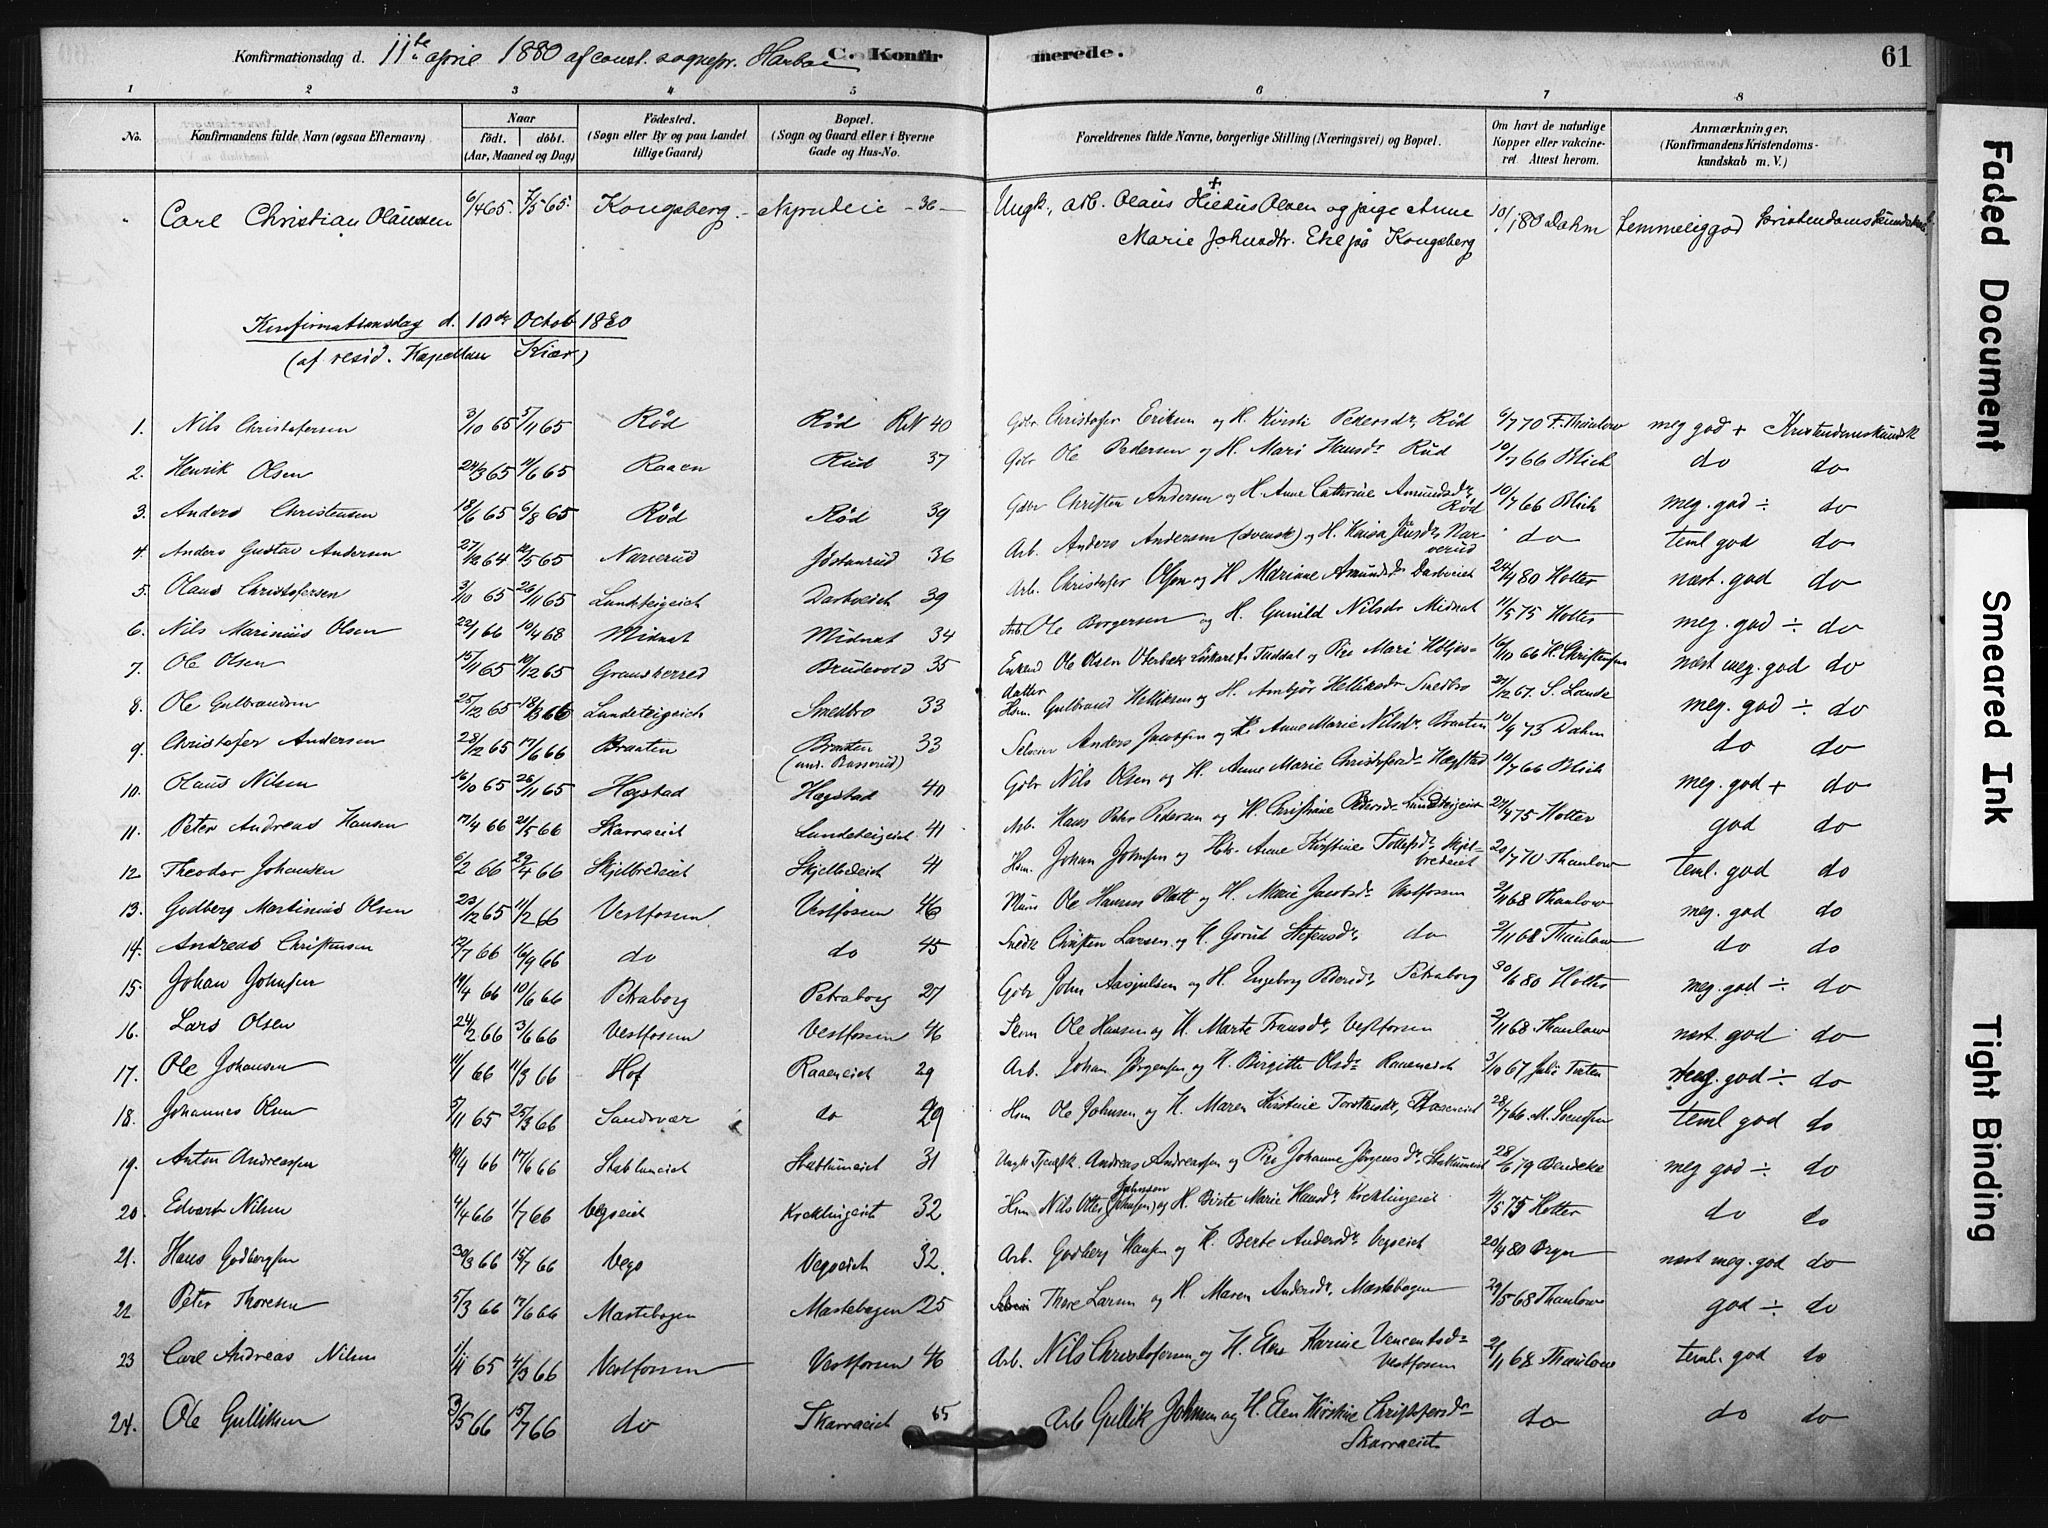 Konfirmationsdag d. 11te april 1880 af const. sognepr. Harboe C. Konfirmerede. 61
1 2 3 4 5 6 7 8
No. Konfirmandens fulde Navn (ogsaa Efternavn) Naar Födt. döbt. (Aar, Maaned og Dag) Födested. (Sogn eller By og paa Landet tillige Gaard) Bopæl. (Sogn og Gaard eller i Byerne Gade og Hus-No. Forældrenes fulde Navne, borgerlige Stilling (Næringsvei) og Bopæl. Om havt de naturlige Kopper eller vakcineret Attest herom. Anmærkninger, (Konfirmandens Kristendomskundskab m. V.)
Carl Christian Olaussen 6/4 65. 7/5 65. Kongsberg. 36 Ungk. arb. Olaus Olsen og pige Anne
Marie Johnsdtr. Eke paa Kongsberg 10/1 80 Dahm temmelig god Kristendomskundskab
Konfirmationsdag d. 10de Octob 1880
(af resid. Kapellan Kiær)
1. Nils Christofersen 3/10 65 5/11 65 Rød Rød RN 40 Gbr Christofer Eriksen og H. Kirsti Pedersdr, Rød 6/7 70 F. Thaulow meg god + Kristendomskundsk
2. Henrik Olsen 24/3 65 11/6 65 Raaen Rud 37 Gbr Ole Pedersen og H. Mari Hansdr Rud 10/7 66 Blich do do
3. Anders Christensen 18/6 65 6/8 65 Rød Rød 39 Gbr Christen Andersen og H. Anne Cathrine Amundsdr, Rød 10/7 66 Blich meg. god ÷ do
4. Anders Gustav Andersen 27/12 64 12/5 65 Narverud Jostanrud 36 Arb. Anders Andersen (svensk) og H. Kaisa Jensdr, Narverud do teml god do
5. Olaus Christofersen 3/10 65 26/11 65 Lundteigeiet Darbueiet 39 Arb. Christofer Olsen og H. Marinne Amundsdr Darbueiet 24/4 80 Holter næst. god do
6. Nils Marinius Olsen 22/1 66 10/4 68 Midnat Midnat 34 Arb. Ole Borgersen og H. Gunild Nilsdr Midnat 11/5 75 Holter meg. god ÷ do
7. Ole Olsen 15/11 65 10/12 65 Gransherred Brudevold 35 Enkemd Ole Olsen Tuddal og Pige Mari Holjesdatter 16/10 66 H. Christensen næst meg. god do
8. Ole Gulbrandsen 25/12 65 18/3 66 Lundsteigeiet Smedbro 33 Hsm. Gulbrand Helliksen og H. Anbjør Helliksdr Smedbro 21/12 67. S. Lande meg. god ÷ do
9. Christofer Andersen 28/12 65 17/6 66 Braaten Braaten (und. Basserud) 33 Selveier Anders Jacobsen og H. Anne Marie Nilsdr, Braaten 10/9 73 Dahm do do
10. Olaus Nilsen 16/10 65 26/11 65 Hægstad Hægstad 40 Gbr Nils Olsen og H. Anne Marie Christofersdr Hægstad 10/7 66 Blich meg. god + do
11. Peter Andreas Hansen 17/4 66 21/5 66 Skarraeiet Lundeteigeiet 41 Arb. Hans Peter Pedersen og H. Christiane Pedersdr Lundteigeiet 27/4 75 Holter god do
12 Theodor Johansen 6/2 66 29/4 66 Skjelbredeiet Skjelbredeiet 41 Hsm. Johan Johnsen og H. Anne Kirstine Tollefsdr, Skjelbredeiet 20/7 70 Thaulow teml. god do
13. Godberg Martinius Olsen 23/12 65 11/2 66 Vestfossen Vestfossen 46 Murer Ole Hansen Platt og H. Marie Jacobsdr Vestfossen 2/11 68 Thaulow meg. god do
14. Andreas Christensen 12/7 66 16/9 66 do do 45 Snedk Christen Larsen og H. Gorud Stefensdr, do 2/11 68 Thaulow do do
15. Johan Johnsen 14/4 66 10/6 66 Petraborg Petraborg 27 Gbr John Aasjulsen og H. Ingeborg Pedersdr, Petraborg 30/6 80 Holter meg. god ÷ do
16. Lars Olsen 24/2 66 3/6 66 Vestfossen Vestfossen 46 Ole Hansen og H. Marte Fransdr, Vestfossen 2/11 68 Thaulow næst god do
17. Ole Johansen 11/1 66 11/3 66 Hof Raaeneiet 29 Arb. Johan Jørgensen og H. Birgitte Olsdr Raaeneiet 3/10 67 meg. god ÷ do
18. Johannes Olsen 5/11 65 25/3 66 Sandsvær do 29 Hsm Ole Johnsen og H. Maren Kirstine Torstensdr, Raaeneiet 28/7 66 M. Svendsen teml god do
19. Anton Andreassen 19/4 66 17/6 66 Stablumeiet Stablumeiet 31 Ungk Tjenestk. Andreas Andreassen og Pige Johanne Jørgensdr, Stablumeiet 28/6 79 Bendeke meg god ÷ do
20. Edvart Nilsen 4/4 66 1/7 66 Vegoeiet Kreklingeiet 32 Hsm Nils Otter Johnsen (Johnsen) og H. Birte Marie Hansdr, Kreklingeiet 4/5 75 Holter do do
21. Hans Godbergsen 30/3 66 15/7 66 Vego Vegoeiet 32. Arb. Godberg Hansen og H. Berte Andersdr. Vegoeiet 20/4 80 Bryn næst meg. god do
22 Peter Thoresen 5/3 66 17/6 66 Mastebogen Mastebogen 25 Thore Larsen og H. Maren Andersdr, Mastebogen 29/5 68 Thaulow god ÷ do
23 Carl Andreas Nilsen 1/11 65 4/3 66 Vestfossen Vestfossen 46 Arb. Nils Christofersen og H. Elen Karine Vencentsdr Vestfossen 2/11 68 Thaulow teml. god do
24. Ole Gulliksen 3/5 66 15/7 66 do Skarraeiet 65 Arb Gullik Johnsen og H. Elen Kirstine Christofersdr Skarraeiet do do do
Faded Document
Smeared Ink
Tight Binding